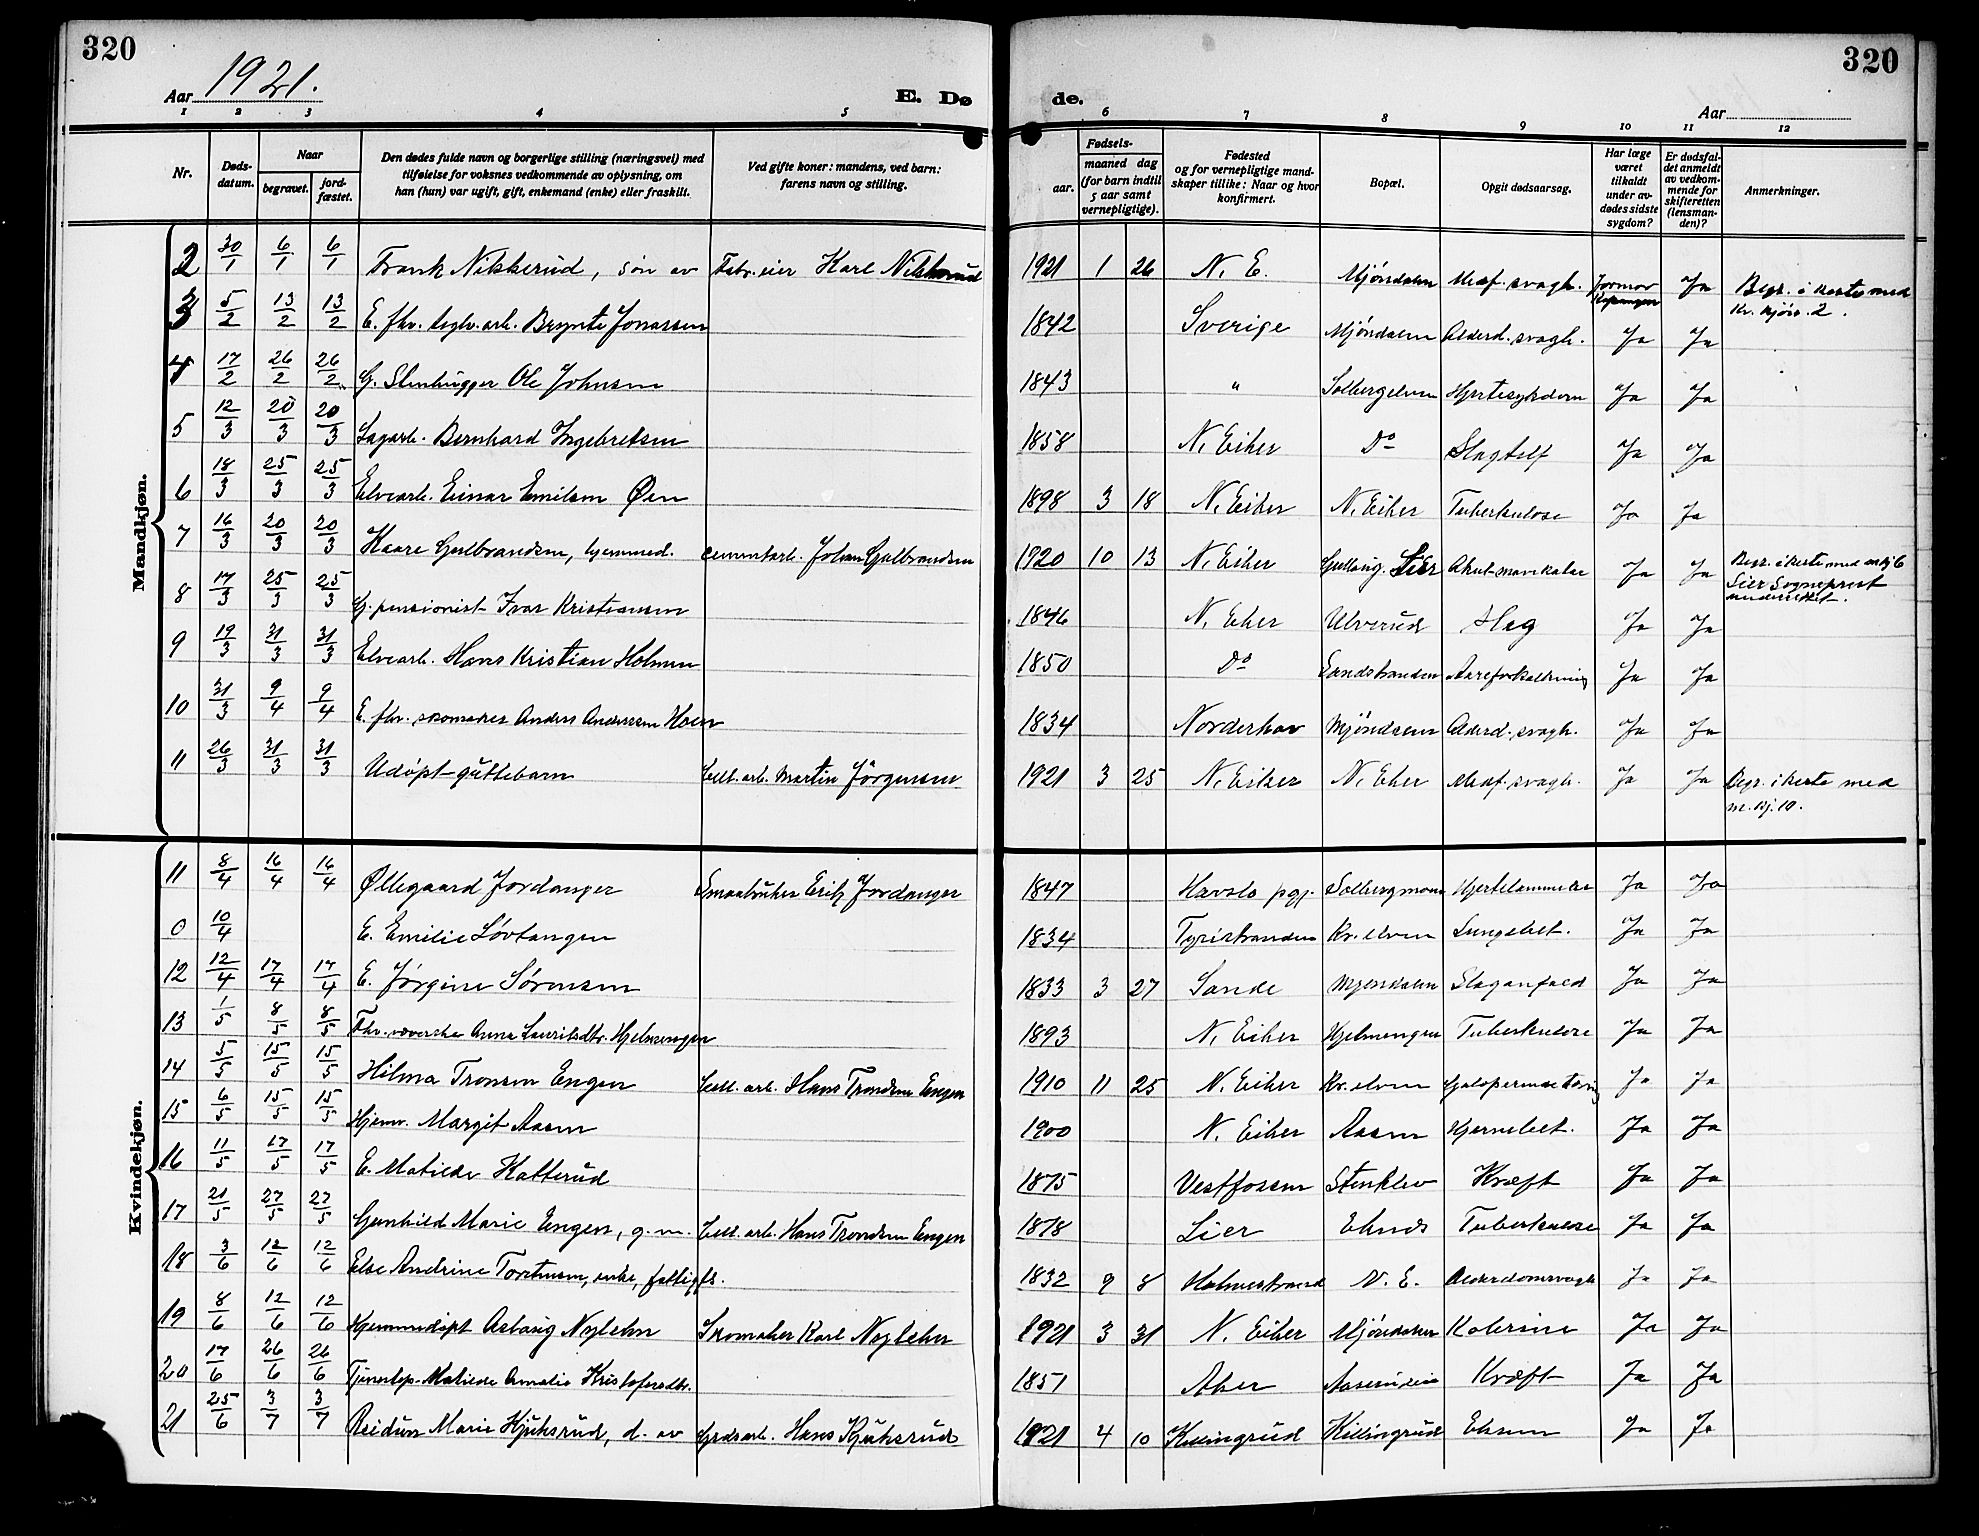 320
Aar 1921.
E. Dø
1 2 3 4 5
Nr.
Døds-
datum.
Naar
begravet.
jord-
fæstet.
Den dødes fulde navn og borgerlige stilling (næringsvei) med
tilføielse for voksnes vedkommende av oplysning, om
han (hun) var ugift, gift, enkemand (enke) eller fraskilt.
Ved gifte koner: mandens, ved barn:
farens navn og stilling.
Mandkjøn.
2 30/1 6/1 6/1 Frank Nilskerud, søn av Fabr.eier Karl
3 5/2 13/2 13/2 E. fhv. teglv.arb. Brynte Jonassen
4 17/2 26/2 26/2 G. Stenhugger Ole Johnsen
5 12/3 20/3 20/3 Sagarb. Bernhard Ingebretsen
6 18/3 25/3 25/3 Elvearb. Einar Emilsen Øen
7 16/3 20/3 20/3 Kaare Gulbrandsen, hjemmed. cementarb. Johan Gulbrandsen
8 17/3 25/3 25/3 G. pensionist Ivar Kristiansen
9 19/3 31/3 31/3 Elvearb. Hans Kristian Holmen
10 31/3 9/4 9/4 E. fhv. skomaker Anders Anderssen Hoen
11 26/3 31/3 31/3 Udøpt guttebarn Cell. arb. Martin Jörgensen
Kvindekjøn.
11 8/4 16/4 16/4 Øllegaard Jordanger Smaabruker Erik Jordanger
0 10/4 E. Emilie Løvtangen
12 12/4 17/4 17/4 E. Jørgine Sörensen
13 1/5 8/5 8/5 Fhv. væverske Anna Lauritsdtr. Hjelmengen
14 5/5 15/5 15/5 Hilma Tronsen Engen Cell. arb. Hans Trondsen Engen
15 6/5 15/5 15/5 Hjemv. Margit Aasen
16 11/5 17/5 17/5 E. Matilde Katterud
17 21/5 27/5 27/5 Gunhild Marie Engen, g. m. Cell. arb. Hans Trondsen Engen
18 3/6 12/6 12/6 Else Andrine Torstensen, enke, fattigfs.
19 8/6 12/6 12/6 Hjemmedøpt Aslaug Nylehn Skomaker Karl Nylehn
20 17/6 26/6 26/6 Tjenestep. Matilde Amalie Kristofersdtr.
21 25/6 3/7 3/7 Reidun Marie Kjuksrud, d. av Grdsarb. Hans Kjuksrud
320
de.
Aar
6 7 8 9 10 11 12
Fødsels-
aar.
maaned dag
(for barn indtil
5 aar samt
vernepligtige).
Fødested
og for vernepligtige mand-
skaper tillike: Naar og hvor
konfirmert.
Bopæl.
Opgit dødsaarsag.
Har læge
været
tilkaldt
under av-
dødes sidste
sygdom?
Er dødsfal-
det anmeldt
av vedkom-
mende for
skifteretten
(lensman-
den)?
Anmerkninger.
1921 1 26 N. E. Mjöndalen Medf. svagh. Jormor Ja Begr. i kiste med
Kr. kjön. 2.
1842 Sverige Mjöndalen Alderd. svagh. Ja Ja
1843 " Solbergelven Hjertesykdom Ja Ja
1858 N. Eiker Do Slagtilf Ja Ja
1898 3 18 N. Eiker N. Eiker Tuberkulose Ja Ja
1920 10 13 N. Eiker Gullaug. Lier Akut mavekatar Ja Ja Begr. i kiste med 6
Lier Sogneprest
underrettet.
1846 N. Eker Ulverud Slag Ja Ja
1850 Do Eknesstranden Aareforkalkning Ja Ja
1834 Norderhov Mjöndalen Alderd. svagh. Ja Ja
1921 3 25 N. Eiker N. Eker Medf. svagh. Ja Ja Begr. i kiste med
m. kj. 10.
1847 Havslo pgj. Solbergmoen Hjertelammelse Ja Ja
1834 Tyristranden Kr. elven Lungebet. Ja Ja
1833 3 27 Sande Mjøndalen Slaganfald Ja Ja
1893 N. Eiker Hjelmengen Tuberkulose Ja Ja
1910 11 25 N. Eiker Kr. elven Galoperende tæring Ja Ja
1900 N. Eiker Aasen Hjernebet. Ja Ja
1875 Vestfossen Stenklev Kræft Ja Ja
1878 Lier Eknes Tuberkulose Ja Ja
1832 9 8 Holmestrand N. E. Alderdomsvagh Ja Ja
1921 3 31 N. Eiker Mjöndalen Kolerine Ja Ja
1851 Aker Kræft Ja Ja
1921 4 10 Killingrud Killingrud Eksem Ja Ja